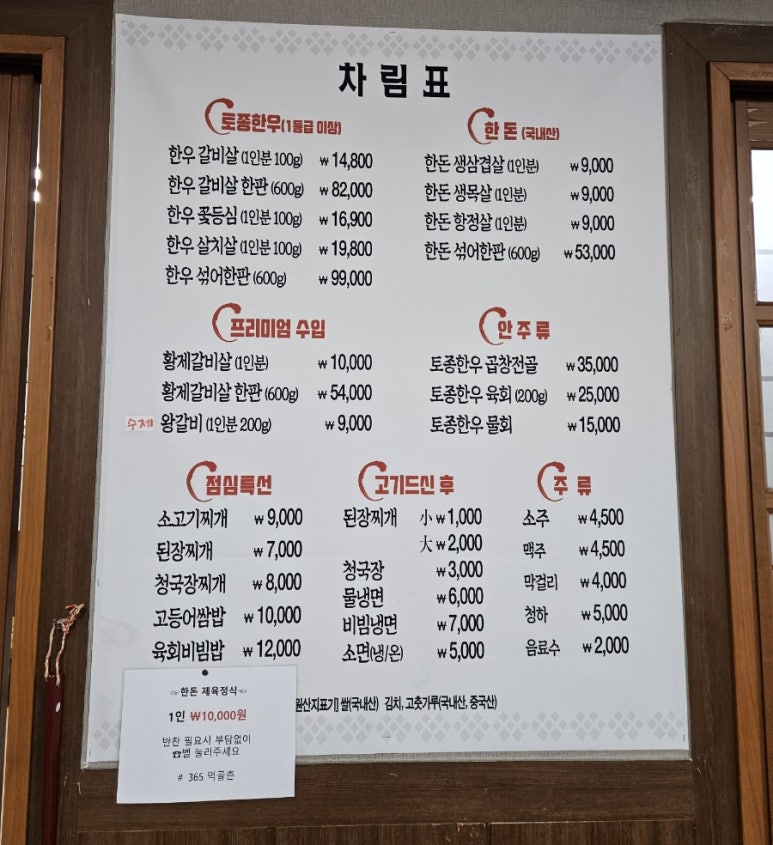 차림표
토종한우(1등급 이상)
한우 갈비살 (1인분 100g) ₩14,800
한우 갈비살 한판 (600g) ₩82,000
한우 꽃등심 (1인분 100g) ₩16,900
한우 살치살 (1인분 100g) ₩19,800
한우 섞어한판 (600g) ₩99,000
한돈 (국내산)
한돈 생삼겹살 (1인분) ₩9,000
한돈 생목살 (1인분) ₩9,000
한돈 항정살 (1인분) ₩9,000
한돈 섞어한판 (600g) ₩53,000
프리미엄 수입
황제갈비살 (1인분) ₩10,000
황제갈비살 한판 (600g) ₩54,000
수제 왕갈비 (1인분 200g) ₩9,000
안주류
토종한우 곱창전골 ₩35,000
토종한우 육회 (200g) ₩25,000
토종한우 물회 ₩15,000
점심특선
소고기찌개 ₩9,000
된장찌개 ₩7,000
청국장찌개 ₩8,000
고등어쌈밥 ₩10,000
육회비빔밥 ₩12,000
고기드신 후
된장찌개 小 ₩1,000
大 ₩2,000
청국장 ₩3,000
물냉면 ₩6,000
비빔냉면 ₩7,000
소면(냉/온) ₩5,000
주류
소주 ₩4,500
맥주 ₩4,500
막걸리 ₩4,000
청하 ₩5,000
음료수 ₩2,000
원산지표기] 쌀(국내산) 김치, 고춧가루(국내산, 중국산)
한돈 제육정식
1인 ₩10,000원
반찬 필요시 부담없이
☎벨 눌러주세요
# 365 먹골촌